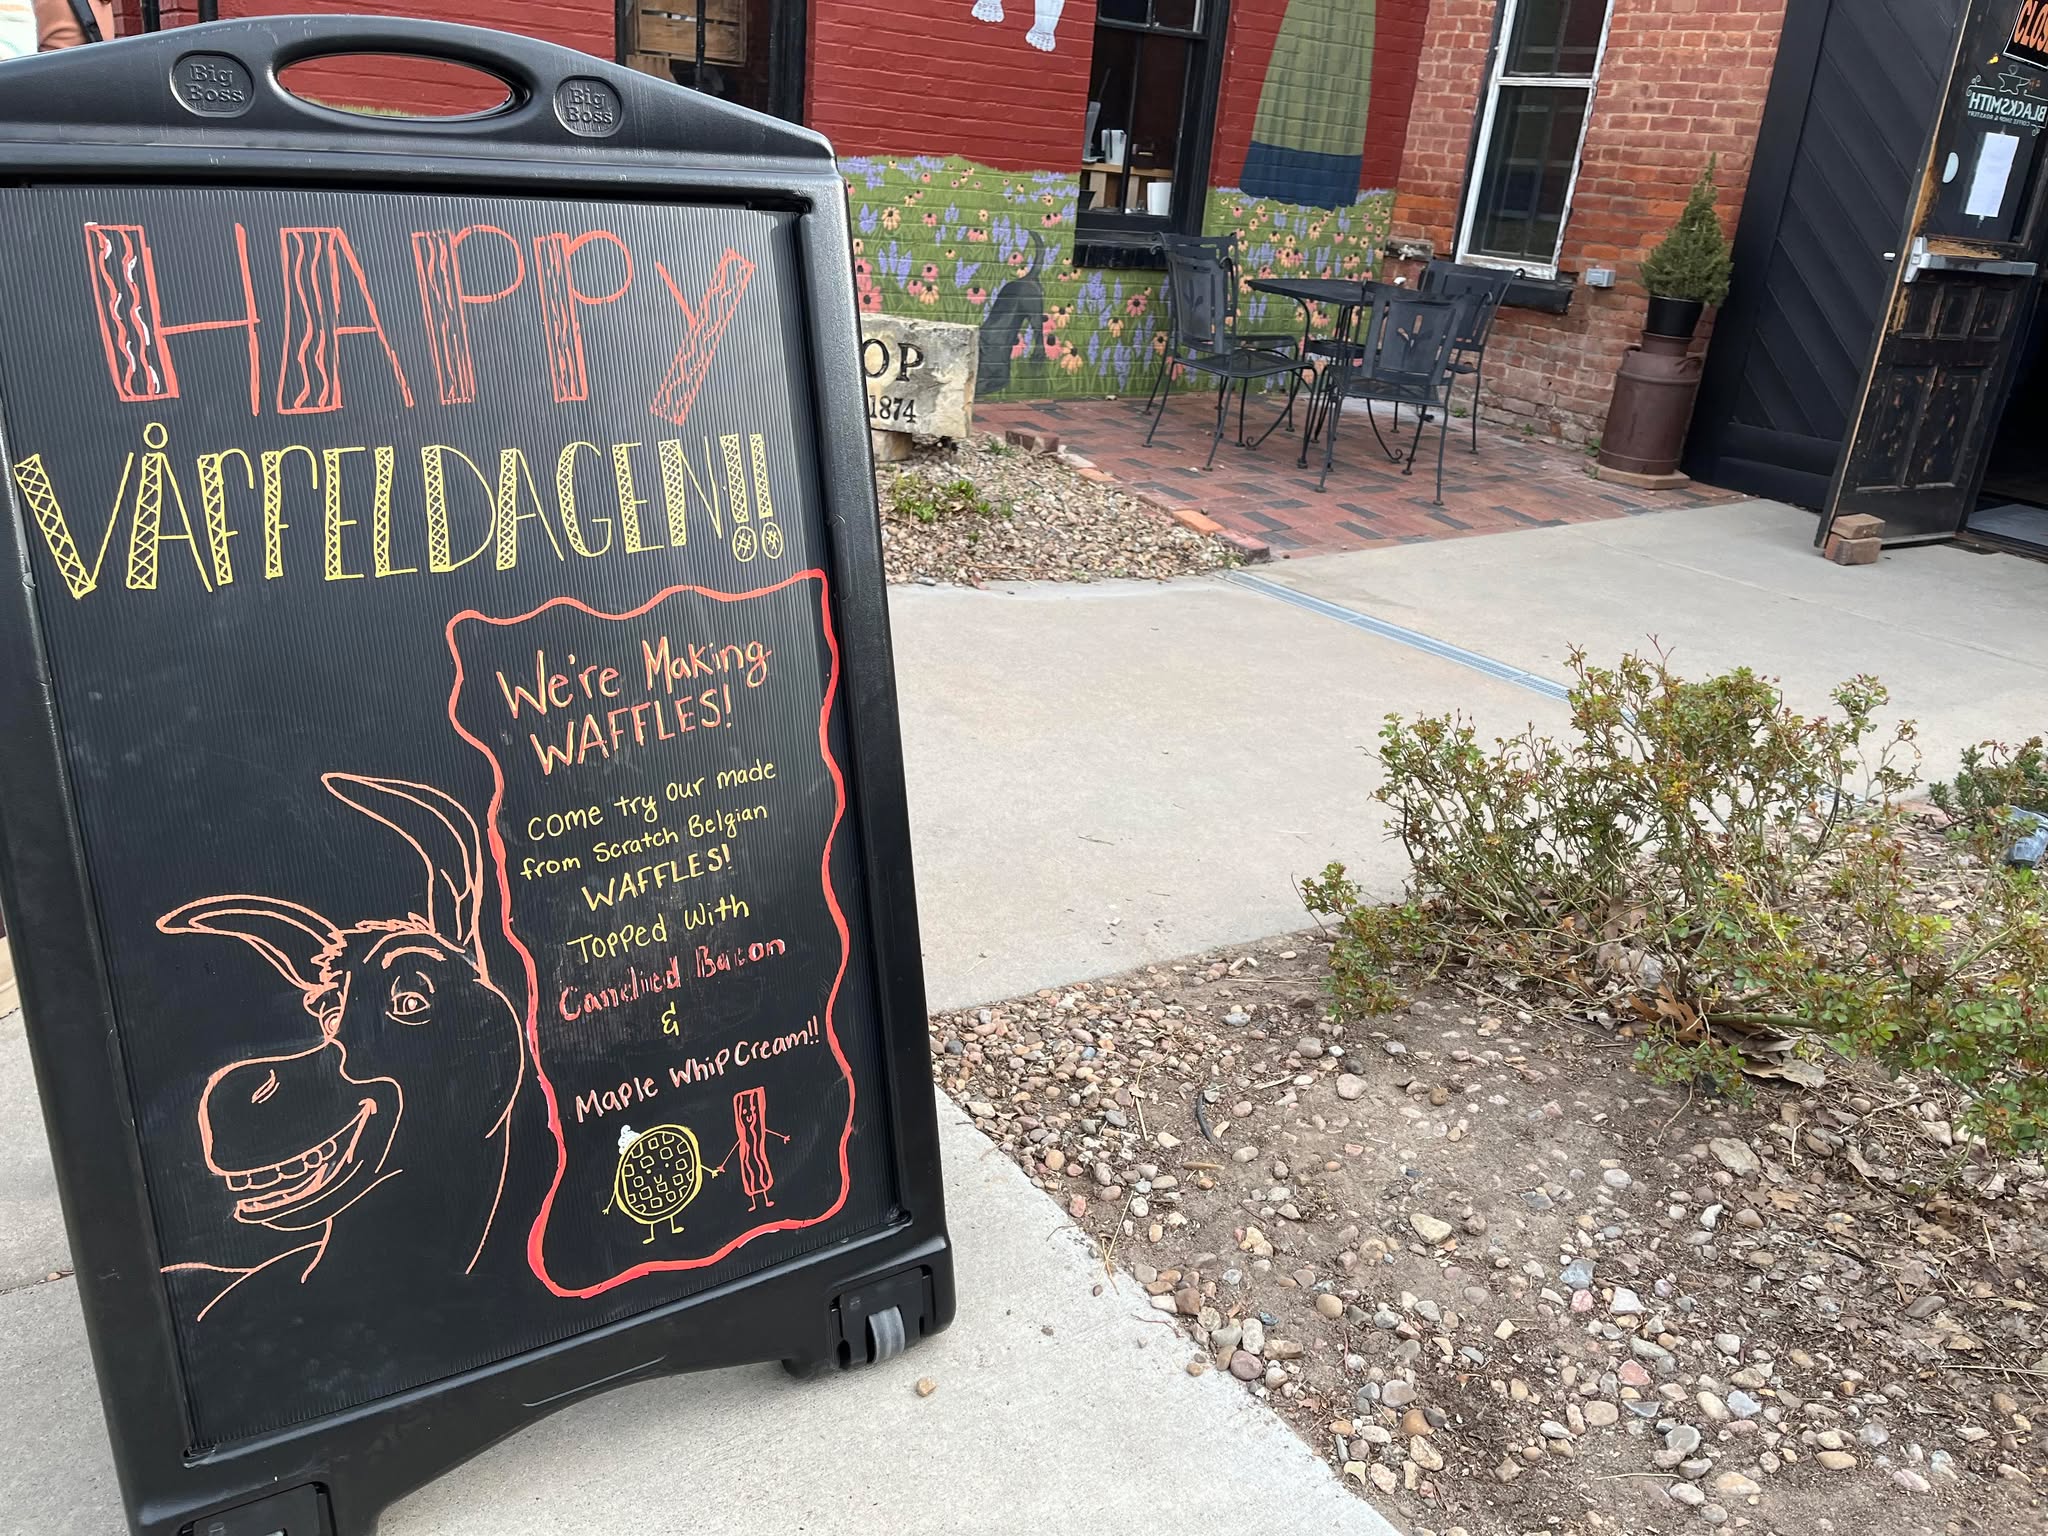 Big
Boss
Big
Boss
HAPPY
VÅFFELDAGEN!!
We're Making
WAFFLES!
come try our made
from scratch Belgian
WAFFLES!
Topped with
Candied Bacon
&
Maple Whip Cream!!
OP
1874
CLOS
BLACKSMITH
COFFEE SHOP & ROASTERY